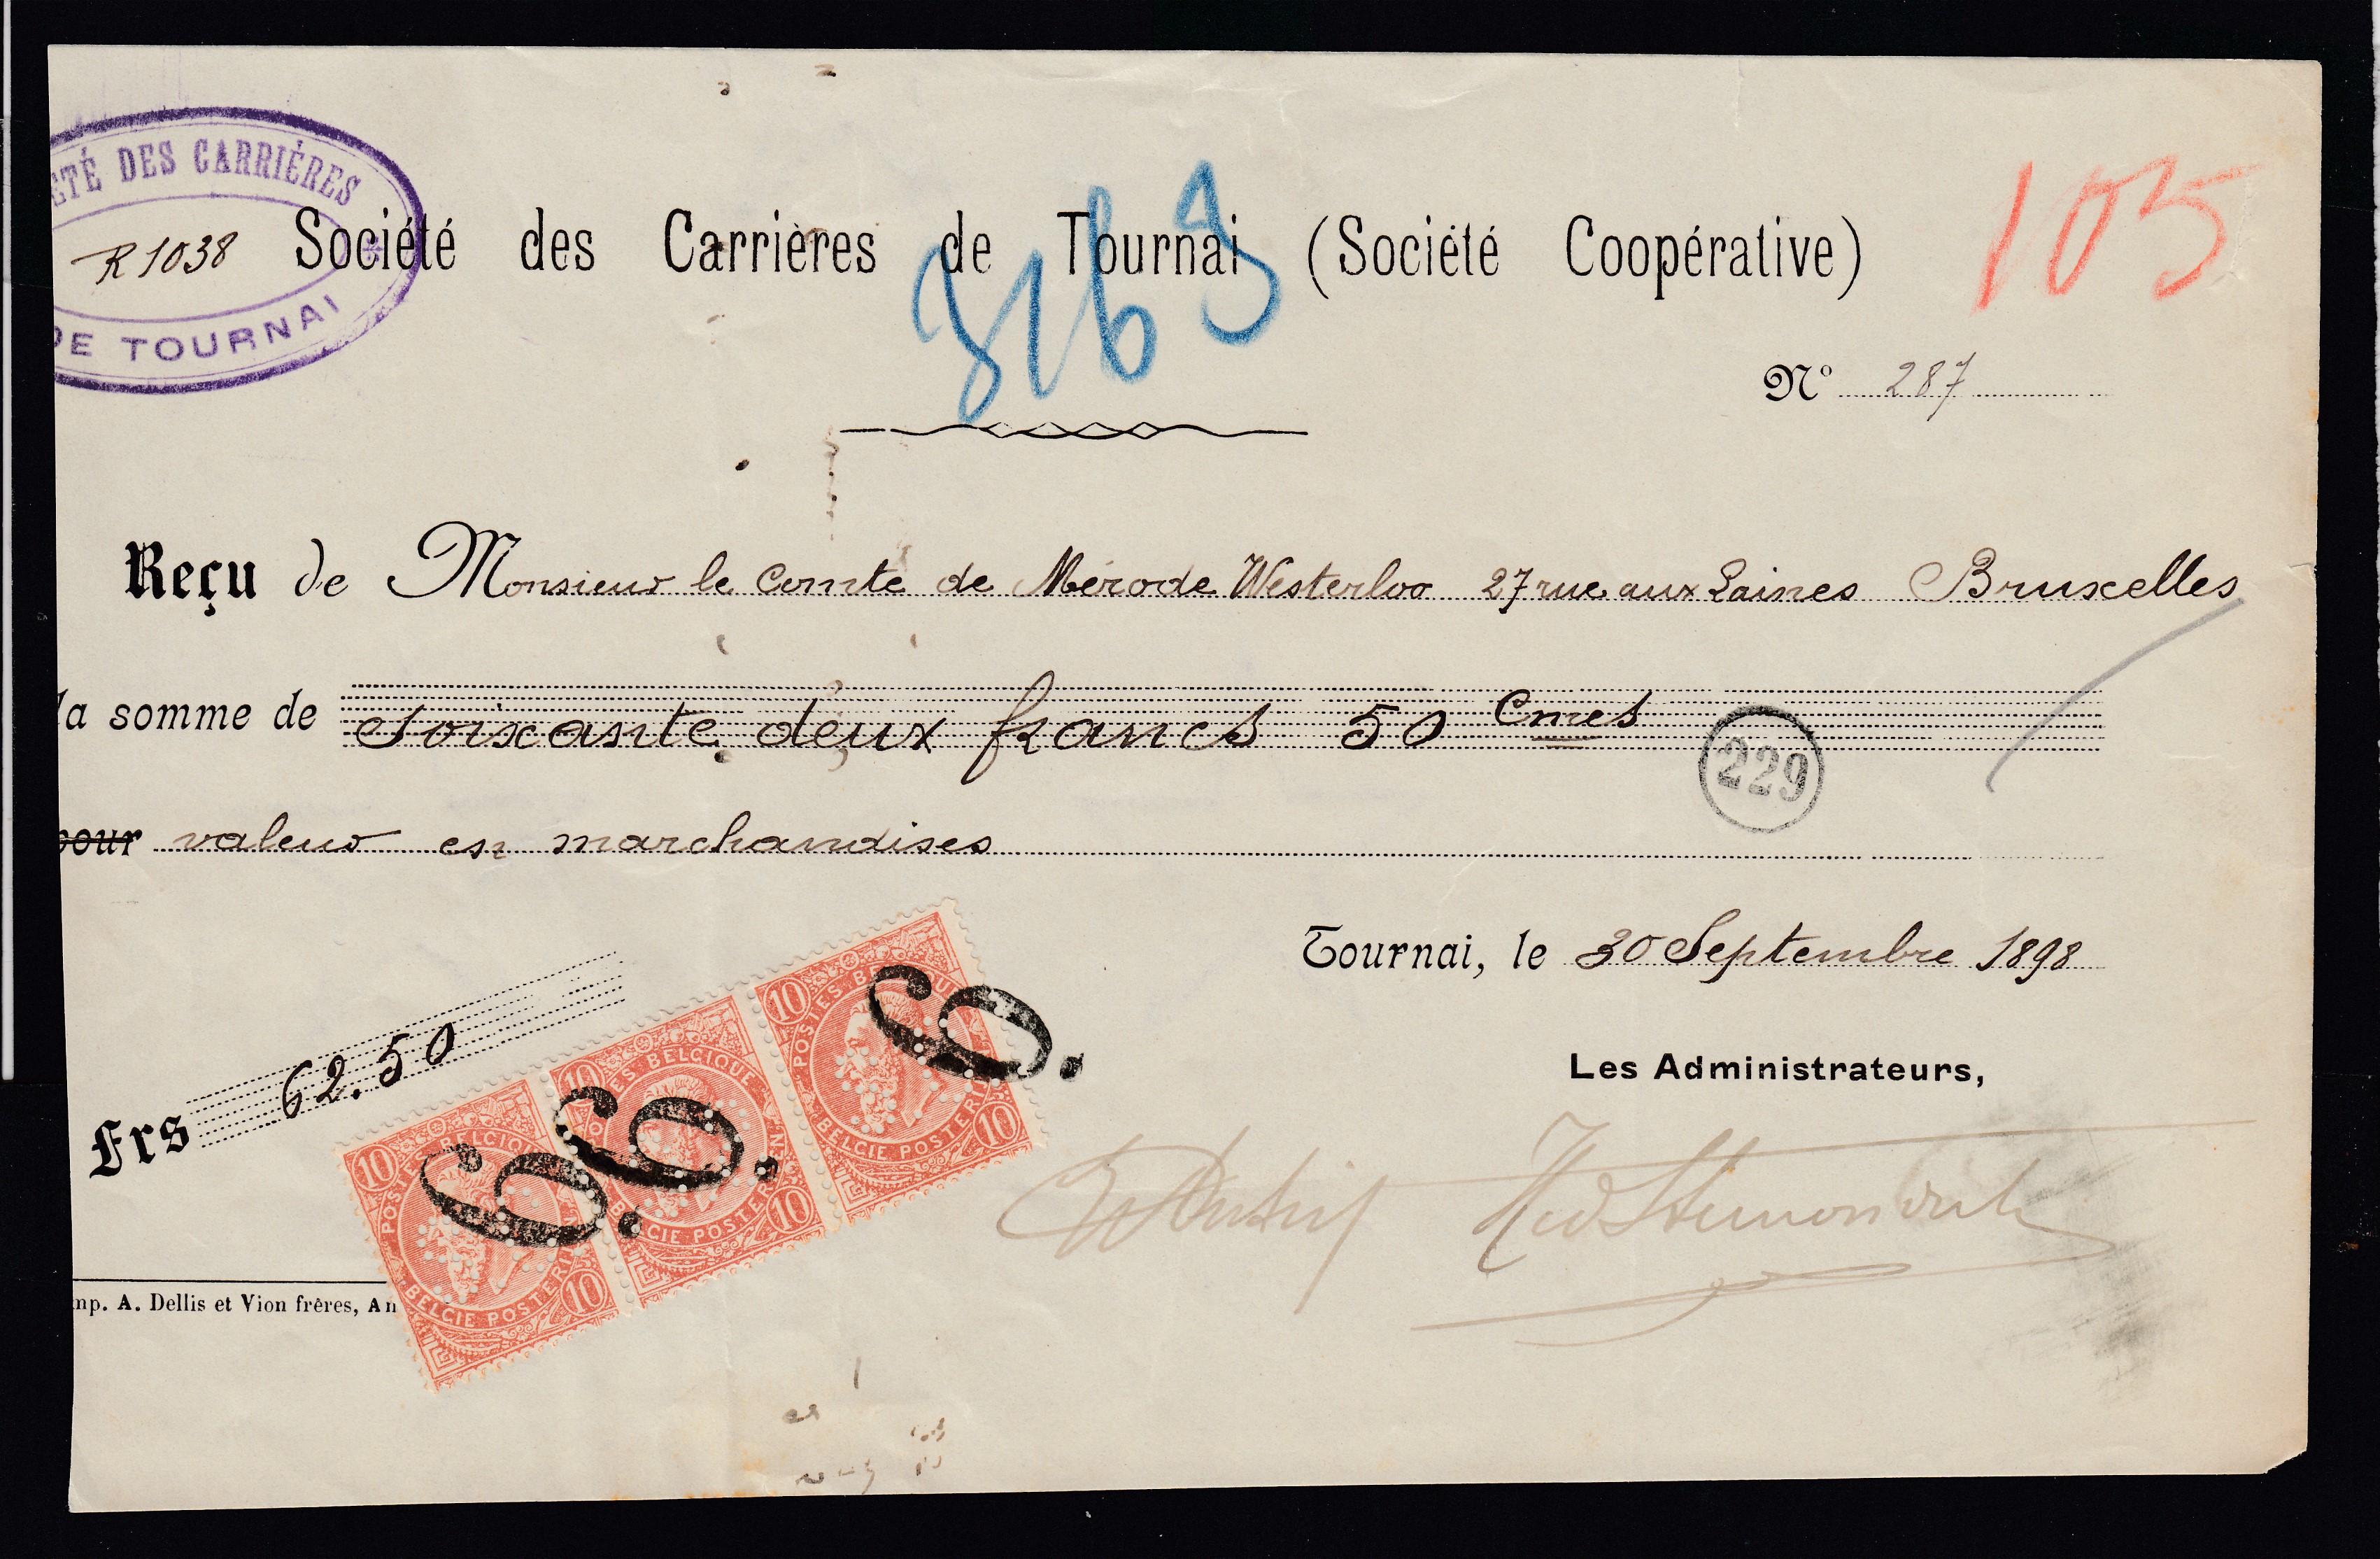 ÉTÉ DES CARRIÈRES
R 1038
DE TOURNAI
Société des Carrières de Tournai (Société Coopérative)
105
3169
Nº 287
Reçu de Monsieur le Comte de Mérode Westerloo 27 rue aux Laines Bruxelles
la somme de soixante deux francs 50 Cmes
229
pour valeur en marchandises
Tournai, le 30 Septembre 1898
Frs 62.50
Les Administrateurs,
10 POSTES BELGIQUE BELGIE POSTERIJEN 10
10 POSTES BELGIQUE BELGIE POSTERIJEN 10
10 POSTES BELGIQUE BELGIE POSTERIJEN 10
9. 9. 9.
mp. A. Dellis et Vion frères, An